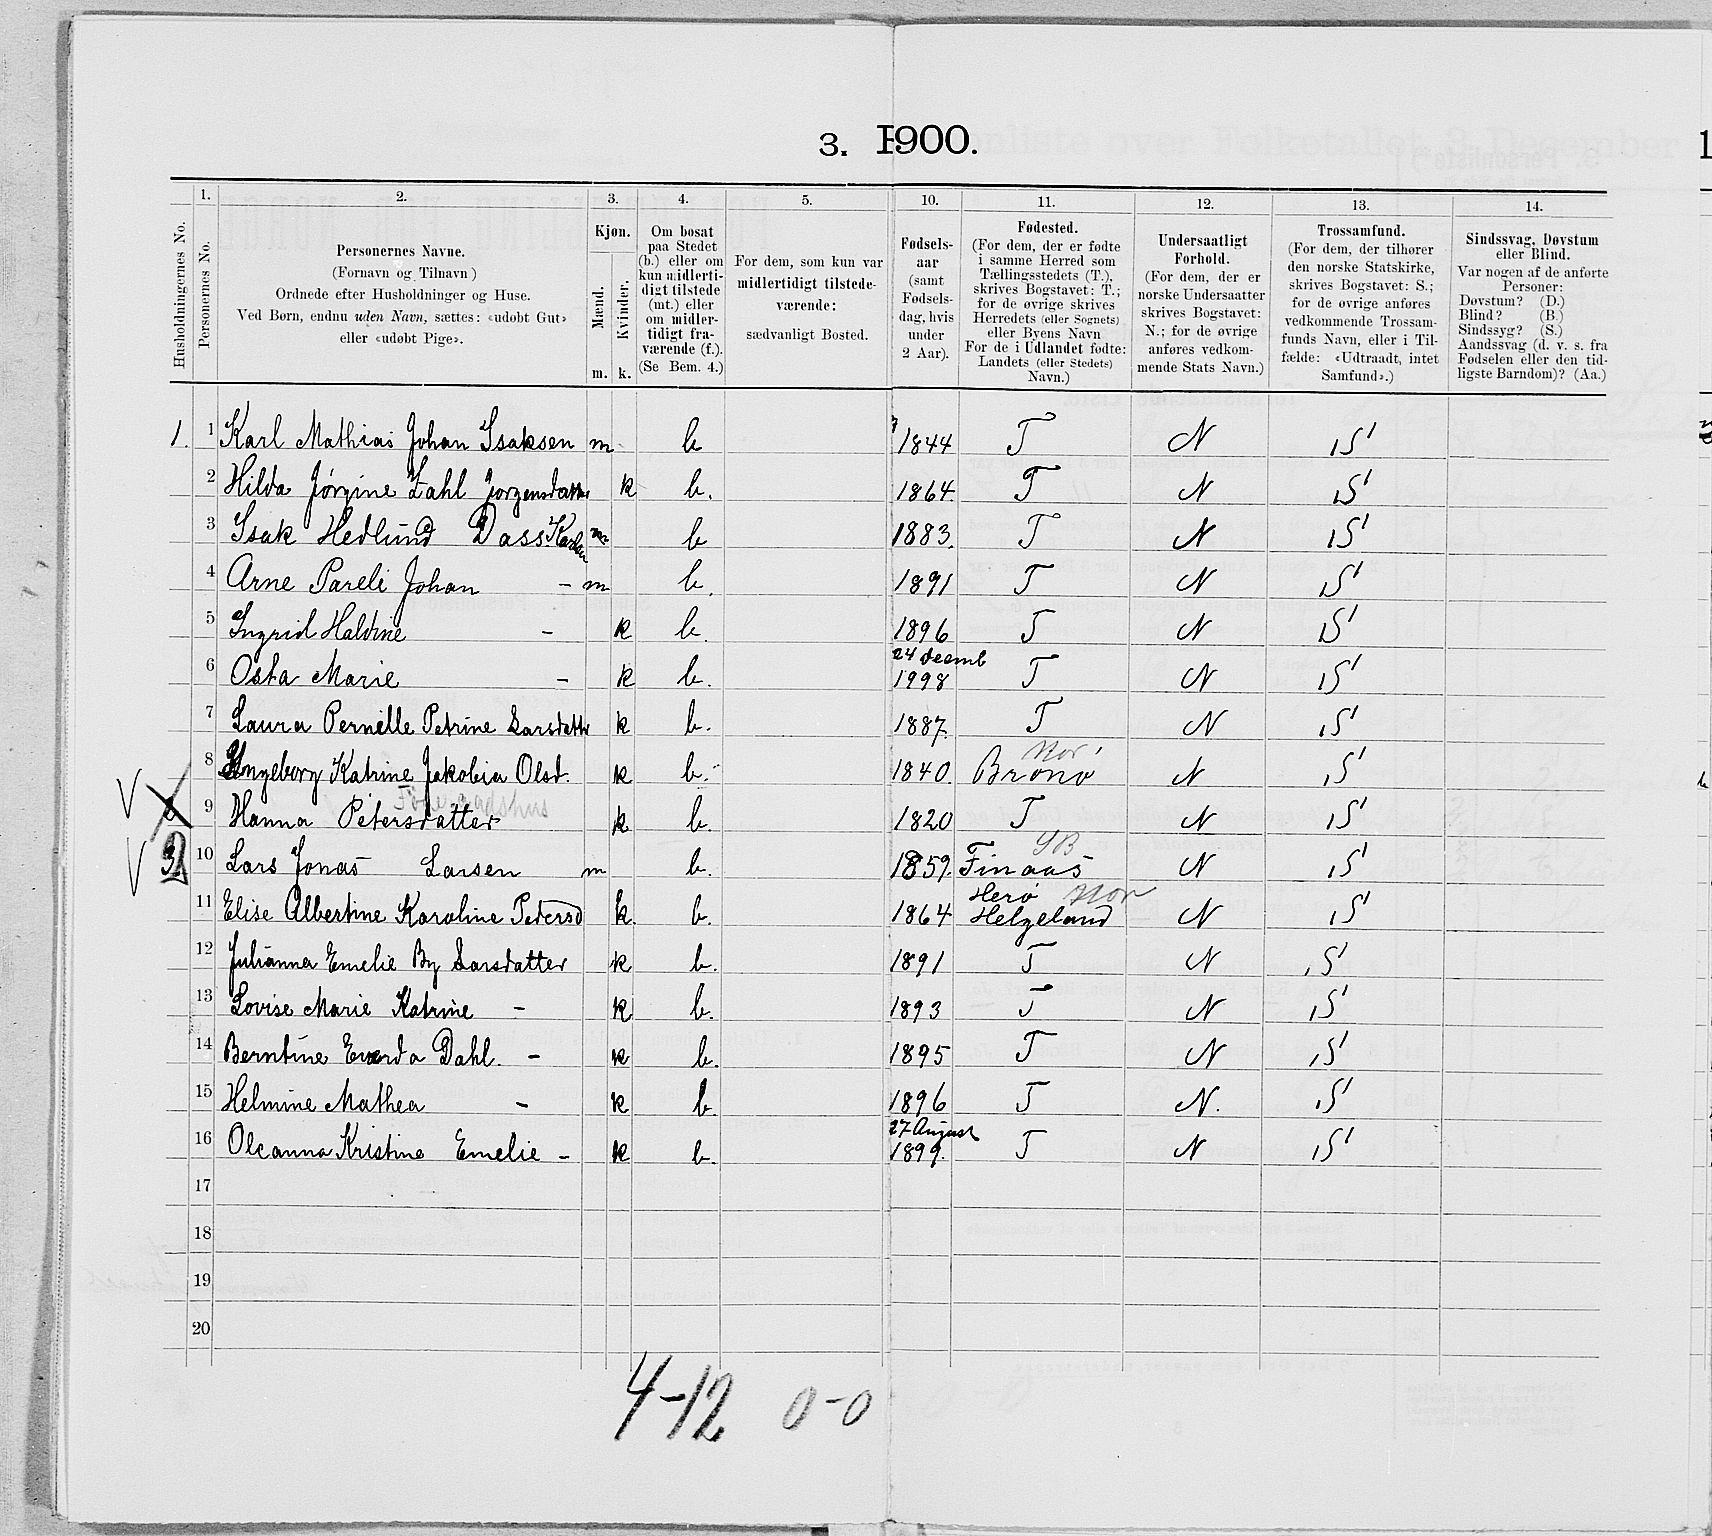 3. 1900.
1. 2. 3. 4. 5. 10. 11. 12. 13. 14.
Husholdningernes No.
Personernes No.
Personernes Navne.
(Fornavn og Tilnavn)
Ordnede efter Husholdninger og Huse.
Ved Børn, endnu uden Navn, sættes: «udøbt Gut»
eller «udøbt Pige».
Kjøn.
Mænd.
Kvinder.
m. k.
Om bosat
paa Stedet
(b.) eller om
kun midlerti-
digt tilstede
(mt.) eller
om midler-
tidigt fra-
værende (f.).
(Se Bem. 4.)
For dem, som kun var
midlertidigt tilstede-
værende:
sædvanligt Bosted.
Fødsels-
aar
(samt
Fødsels-
dag, hvis
under
2 Aar).
Fødested.
(For dem, der er fødte
i samme Herred som
Tællingsstedets (T.),
skrives Bogstavet: T.;
for de øvrige skrives
Herredets (eller Sognets)
eller Byens Navn
For de i Udlandet fødte:
Landets (eller Stedets)
Navn.)
Undersaatligt
Forhold.
(For dem, der er
norske Undersaatter
skrives Bogstavet:
N.; for de øvrige
anføres vedkom-
mende Stats Navn.)
Trossamfund.
(For dem, der tilhører
den norske Statskirke,
skrives Bogstavet: S.;
for de øvrige anføres
vedkommende Trossam-
funds Navn, eller i Til-
fælde: «Udtraadt, intet
Samfund».)
Sindssvag, Døvstum
eller Blind.
Var nogen af de anførte
Personer:
Døvstum? (D.)
Blind? (B.)
Sindssyg? (S.)
Aandssvag (d. v. s. fra
Fødselen eller den tid-
ligste Barndom)? (Aa.)
1. 1 Karl Mathias Johan Isaksen m b 1844 T N S
2 Hilda Jørgine Zahl Jorgensdatter k b. 1864. T N S
3 Isak Hedlund Dass Karlsen m b 1883. T N S
4 Arne Pareli Johan - m b. 1891 T N S
5 Ingrid Haldine - k b. 1896 T N S
24 decemb
6 Osta Marie - k b. 1998 T N S
7 Laura Pernille Petrine Larsdatter k b. 1887. T N S
Nor.
8 Ingeborg Katrine Jakobia Olsd. k b. 1840. Brønø N S
9 Hanna Petersdatter k b. 1820 T N S
SB
2 10 Lars Jonas Larsen m b. 1859. Finaas N S
Herø Nor
11 Elise Albertine Karoline Pedersd k. b. 1864 Helgeland N S
12 Julianna Emelie By Larsdatter k b. 1891 T N S
13 Lovise Marie Katrine - k b. 1893 T N S
14 Berntine Everda Dahl. - k b. 1895 T N S
15 Helmine Mathea - k b. 1896 T N. S
27 August
16 Oleanna Kristine Emelie - k b. 1899. T N S
17
18
19
20
4-12 0-0